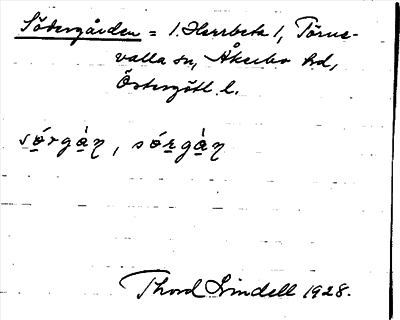 Södergården = 1. Herrbeta 1, Törne-
valla sn, Åkerbo hd,
Östergötl. l.
sǿrgàn, sórgàn
Thord Lindell 1928.